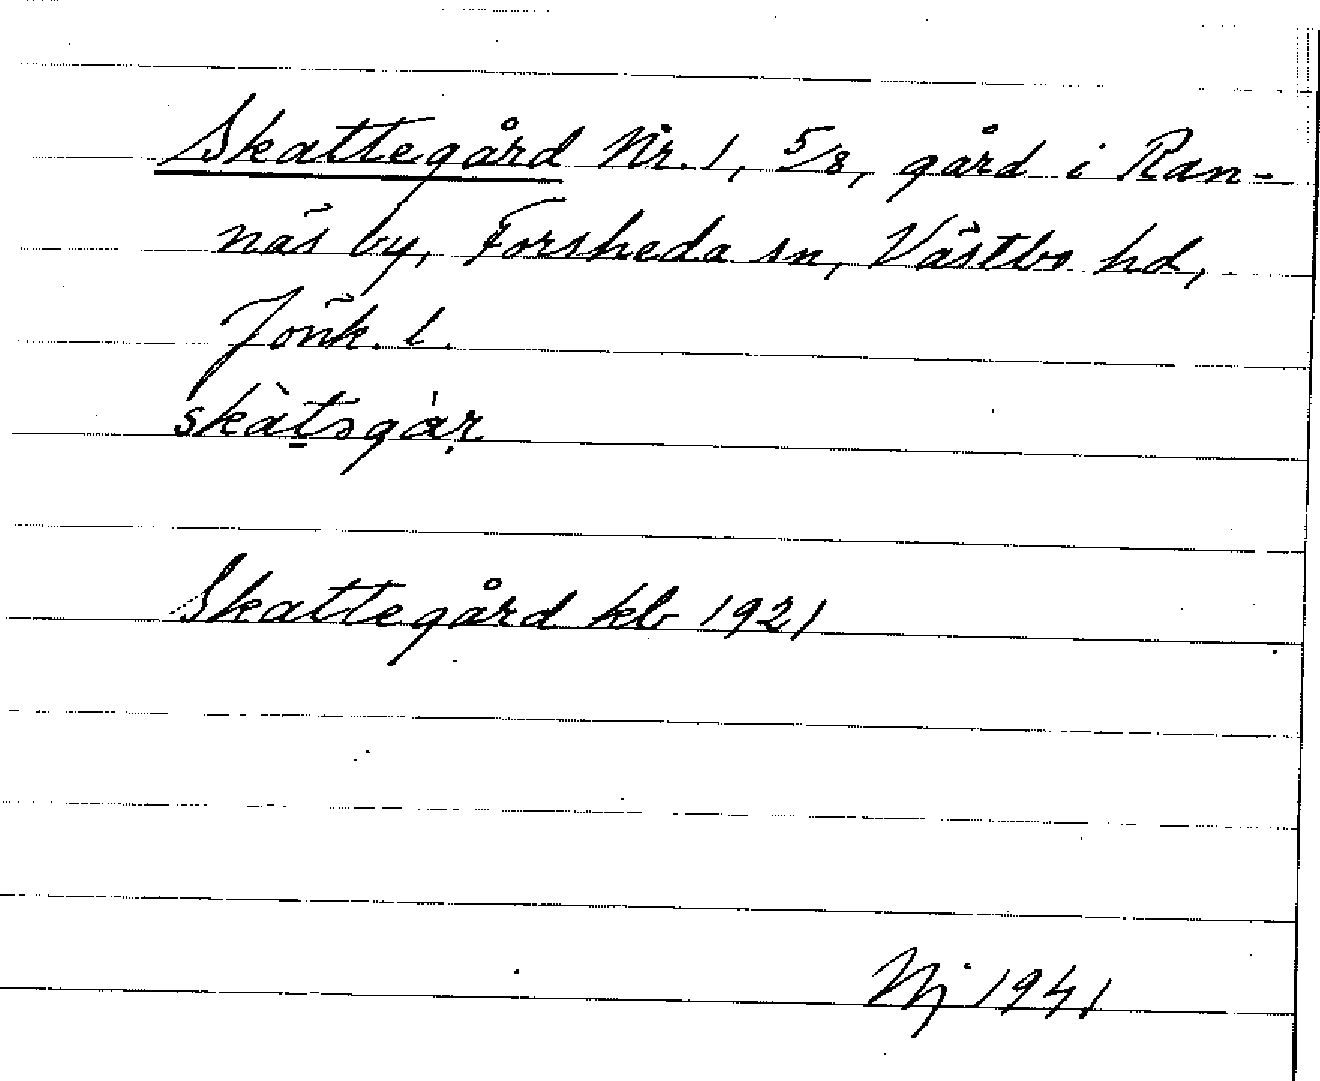 Skattegård Nr. 1, 5/8, gård i Ran-
näs by, Forsheda sn, Västbo hd,
Jönk. l.
skàt̠sgár̩
Skattegård kb 1921
Nj 1941